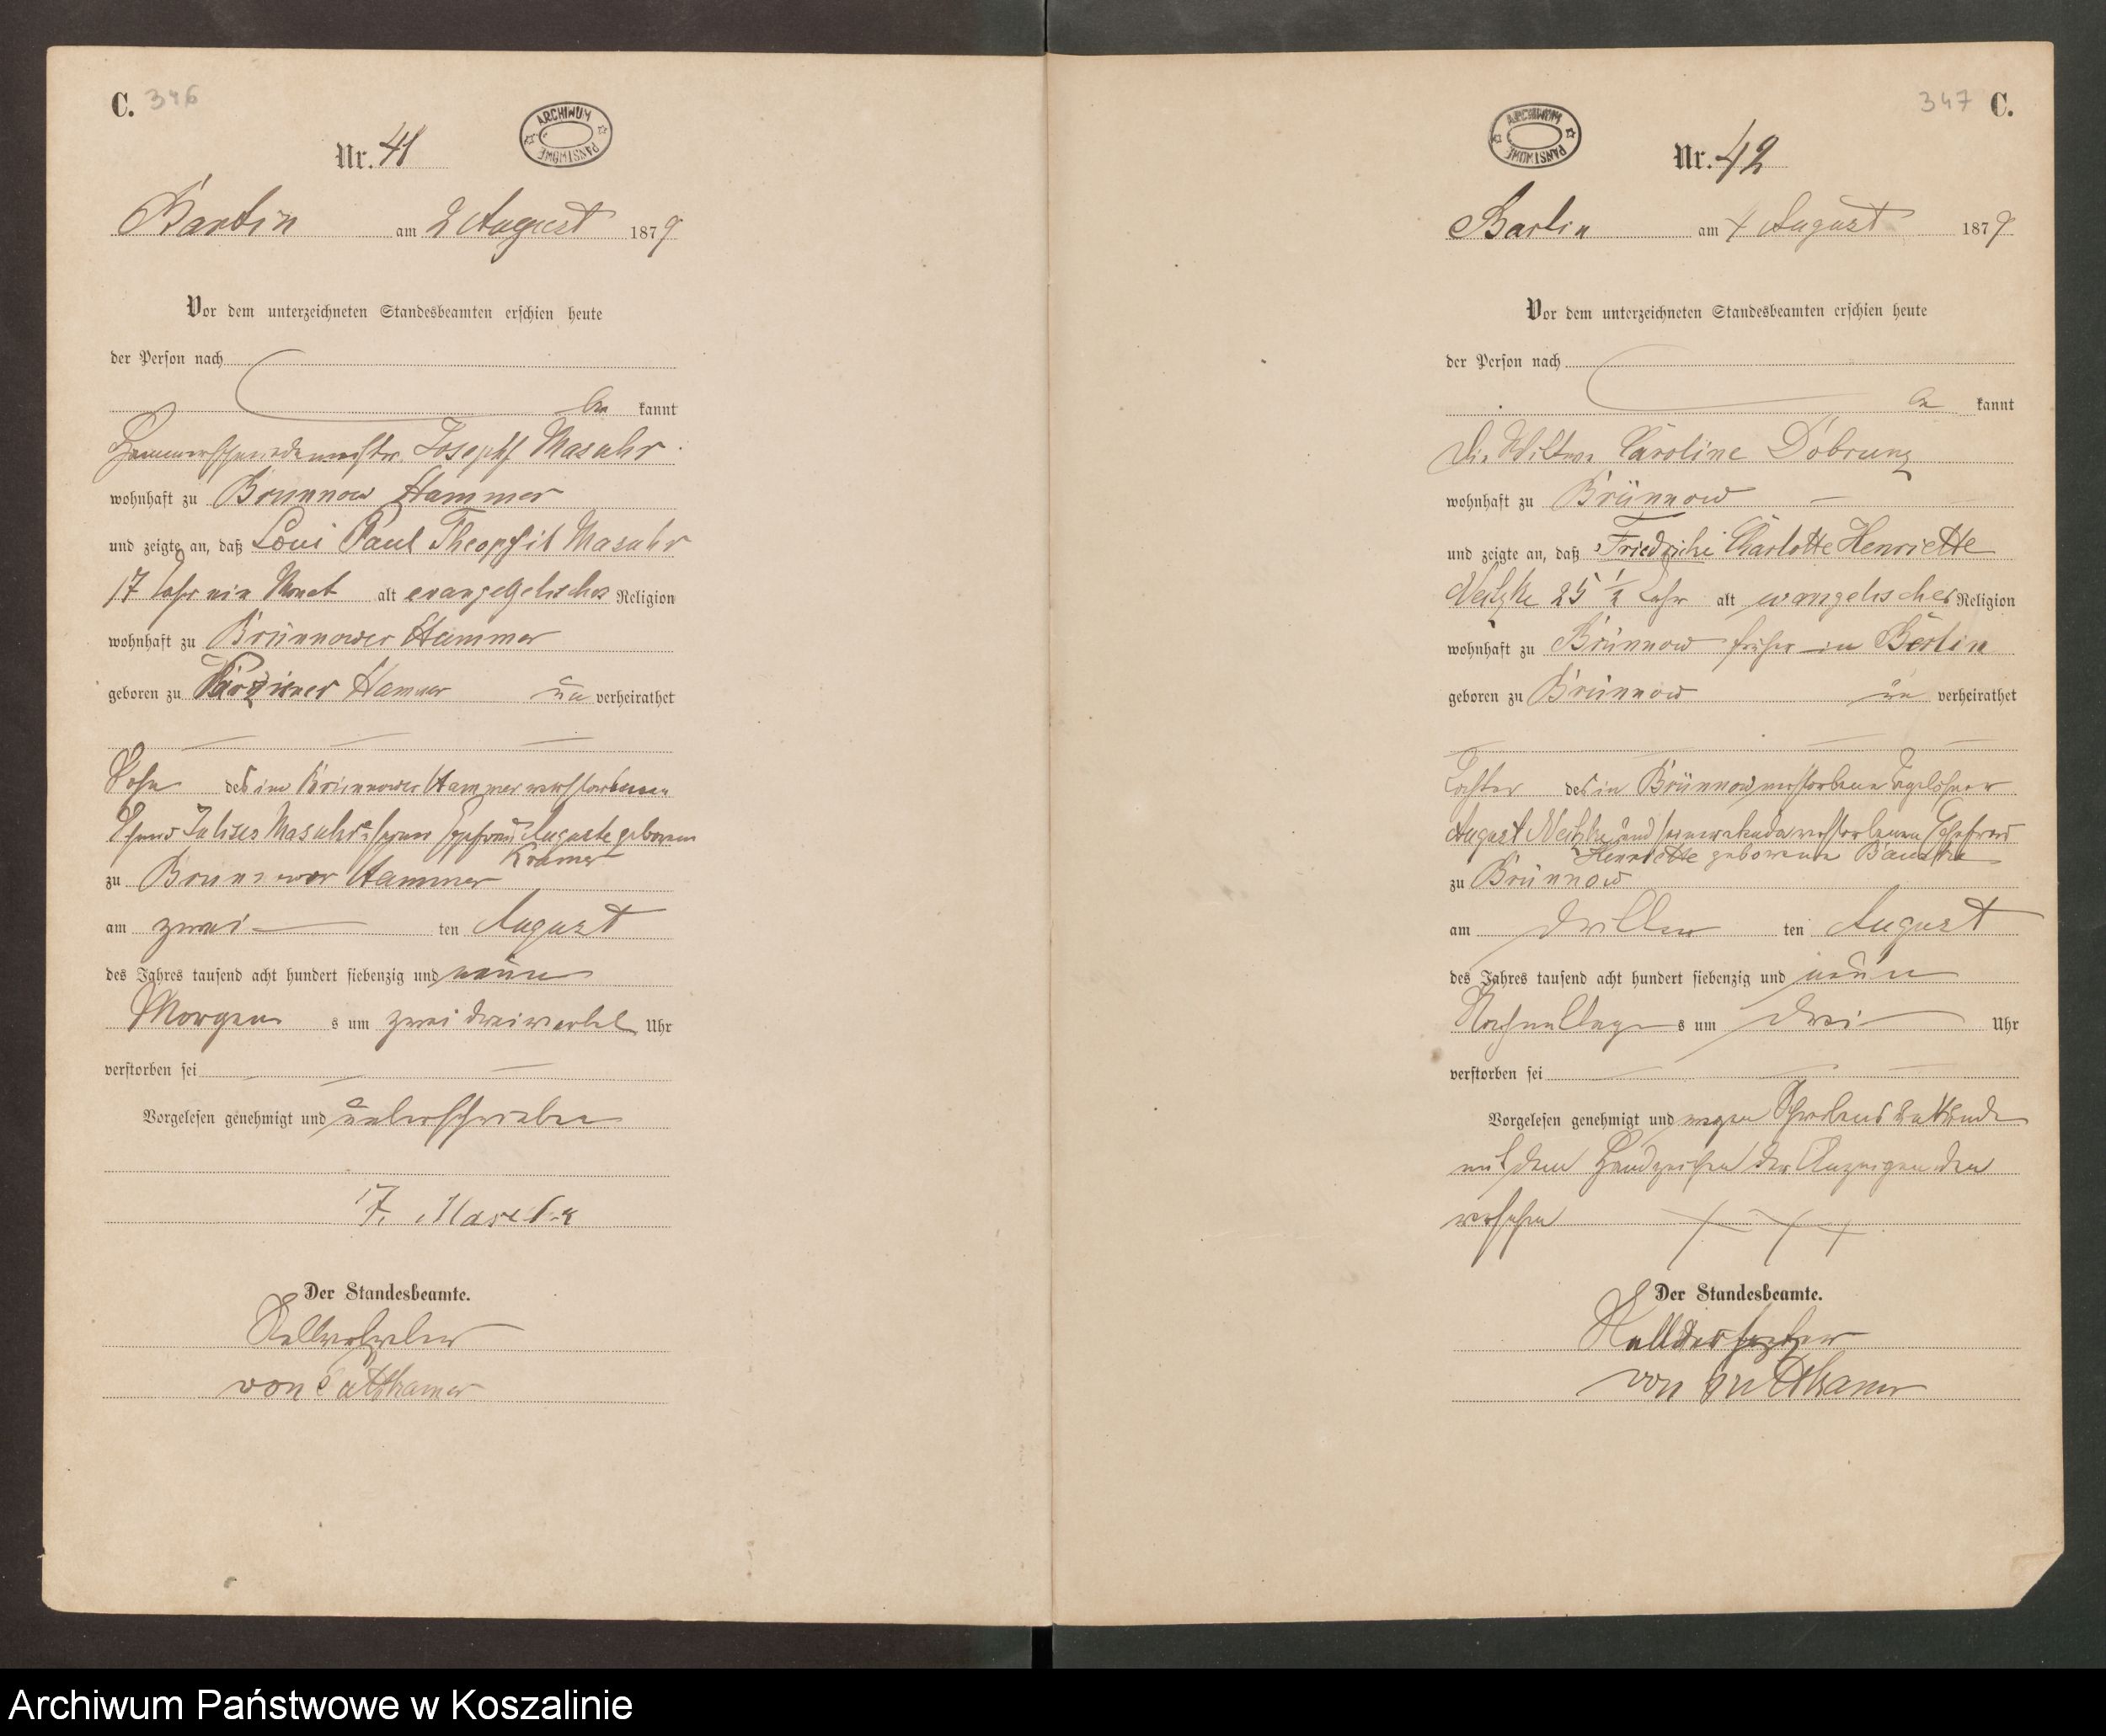 C. 346
ARCHIWUM PAŃSTWOWE
Nr. 41
Bartin am 2 August 1879
Vor dem unterzeichneten Standesbeamten erschien heute
der Person nach
be kannt
Hammerschmiedemeister Joseph Masuhr
wohnhaft zu Brünnow Hammer
und zeigte an, daß Loui Paul Theophil Masuhr
17 Jahr ein Monat alt evangelischer Religion
wohnhaft zu Brünnower Hammer
geboren zu Varziner Hammer un verheirathet
Sohn des im Brünnower Hammer verstorbenen
Julius Masuhr seiner Ehefrau Auguste geborene
Kramer
zu Brünnower Hammer
am zwei ten August
des Jahres tausend acht hundert siebenzig und neun
Morgen s um zwei dreiviertel Uhr
verstorben sei
Vorgelesen genehmigt und unterschrieben
J. Masuhr
Der Standesbeamte.
von Puttkamer
347 C.
ARCHIWUM PAŃSTWOWE
Nr. 42
Bartin am 4 August 1879
Vor dem unterzeichneten Standesbeamten erschien heute
der Person nach
be kannt
die Wittwe Caroline Dobrunz
wohnhaft zu Brünnow
und zeigte an, daß Friedrike Charlotte Henriette
Neitzke 25 1/2 Jahr alt evangelischer Religion
wohnhaft zu Brünnow früher in Berlin
geboren zu Brünnow un verheirathet
Tochter des in Brünnow verstorbenen Tagelöhner
August Neitzke und seiner verstorbenen Ehefrau
Henriette geborene
zu Brünnow
am dritten ten August
des Jahres tausend acht hundert siebenzig und neun
Nachmittag s um drei Uhr
verstorben sei
Vorgelesen genehmigt und wegen Schreibens unkunde
mit dem Handzeichen der Anzeigenden
versehen + + +
Der Standesbeamte.
von Puttkamer
Archiwum Państwowe w Koszalinie